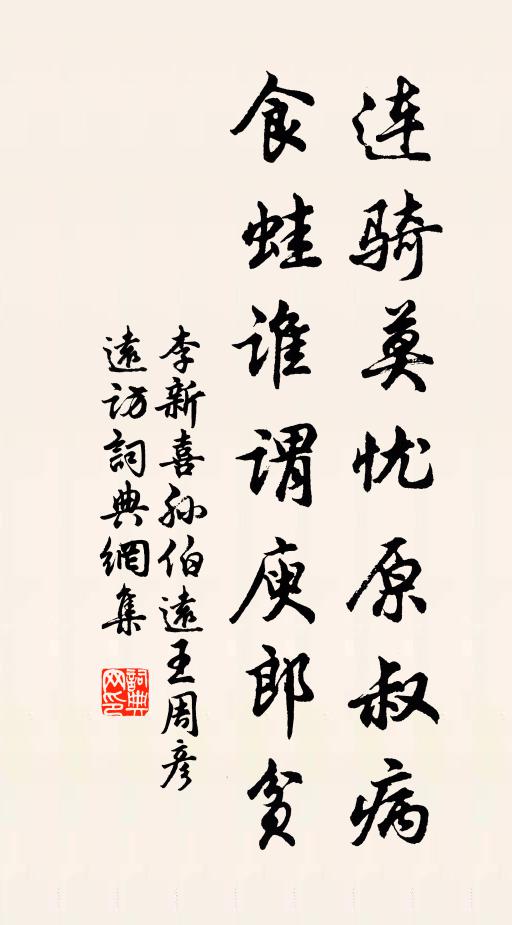 连骑莫忧原叔病
食蛙谁谓庾郎贫
李新喜孙伯遠王周彦
遠访詞典網集
詞典网印